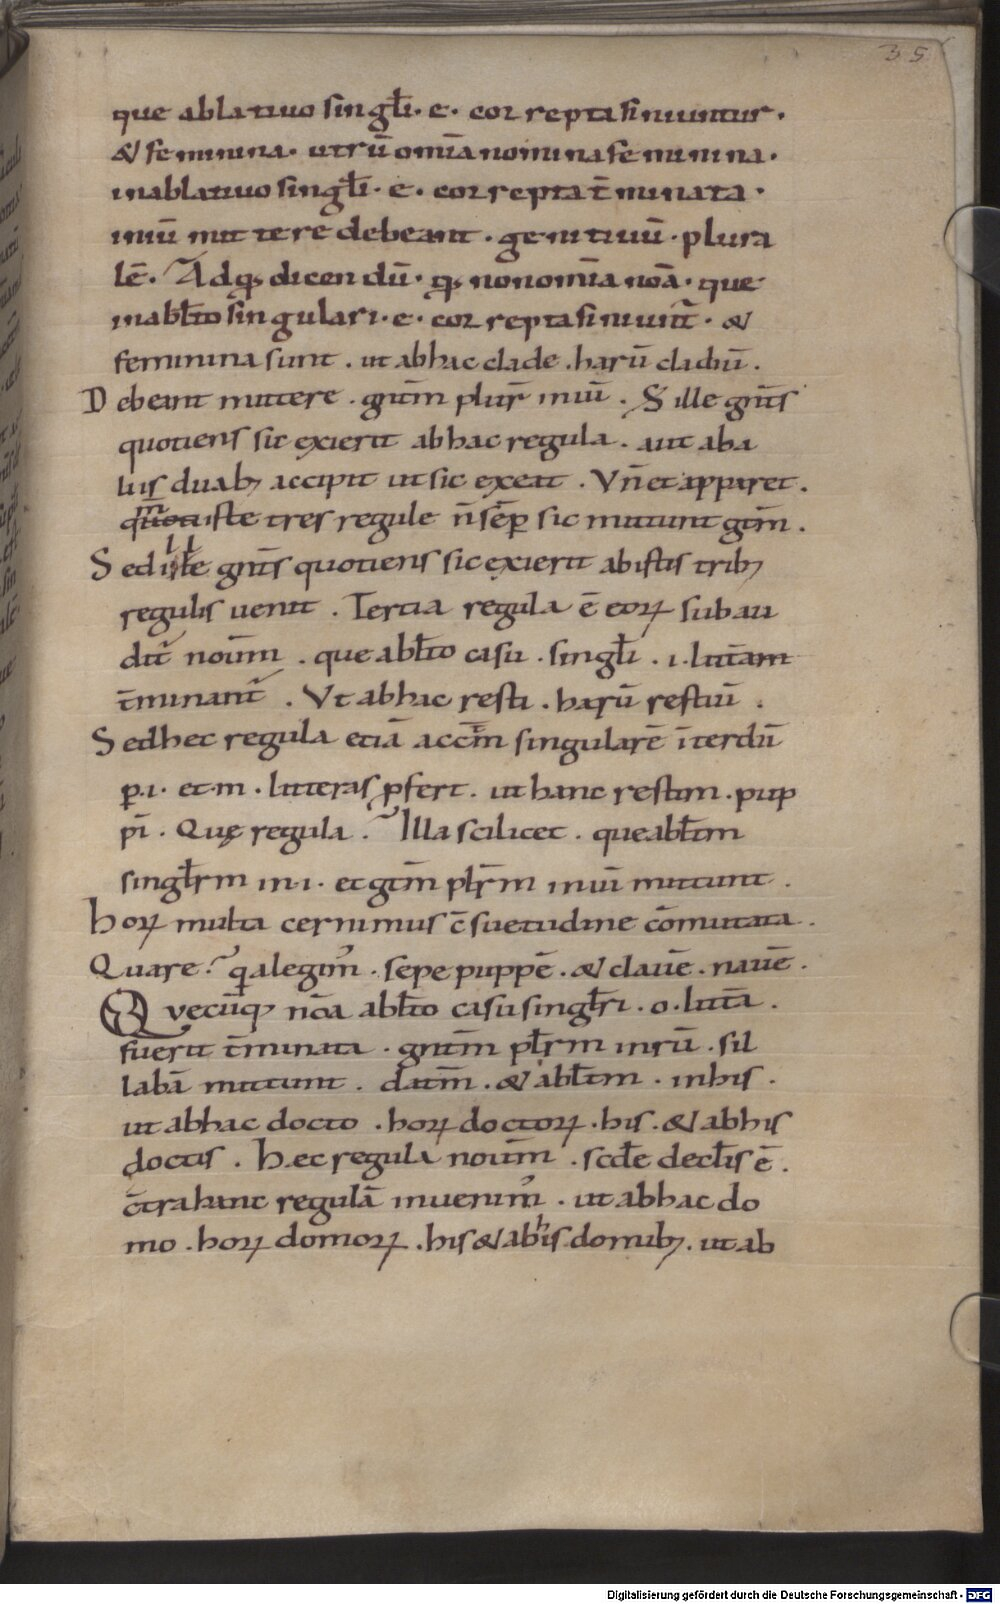 35
que ablatiuo singłi · e · correpta finiuntur ·
& feminina · utrū omīa nomina feminina ·
inablatiuo singłi · e · correpta t̄minata ·
iniū mittere debeant · genitiuū · plura
lē · Adqđ dicendū · qđ nonomīa noā · que
inabłto singulari · e · correpta finiunt̄ · &
feminina sunt . ut abhac clade . harū cladiū .
Debeant mittere . gnīm plur̄ iniū . S ille gnīs
quotiens sic exierit abhac regula . aut aba
liis duabꝫ accipit ut sic exeat . Vn̄ et apparet .
iste tres regule n̄ sēp sic mittunt gtm̄ .
Sed ille gnīs quotiens sic exierit abistis tribꝫ
regulis uenit . Tertia regula ē eoꝝ subau
dit̄ noīm . que abłto casu . singłi . i . litt̄am
t̄minant̄ . Vt abhac resti . harū restiū .
Sedhec regula etiā accm̄ singularē īterdū
p̱ . i . et . m . litteras p̱fert . ut hanc restim . pup
pī . Quę regula . Illa scilicet . queabłtm
singłrm in . i . et gtm̄ płrm iniū mittunt .
hoꝝ multa cernimus c̄suetudine cōmutata .
Quare . qa legim̄ . sepe puppē . & clauē . nauē .
Quecūqꝫ nōa abłto casu singłri . o . litt̄a .
fuerit t̄minata . gnīm płrm inrū . sil
labā mittunt . datm̄ . & abłtm . inhis .
ut abhac docto . hoꝝ doctoꝝ . his . & abhis
doctis . Hec regula noīm . scde decłis ē .
c̄tra hanc regulā inuenim̄ . ut abhac do
mo . hoꝝ domoꝝ . his & abhis domibꝫ . ut ab
Digitalisierung gefördert durch die Deutsche Forschungsgemeinschaft - DFG